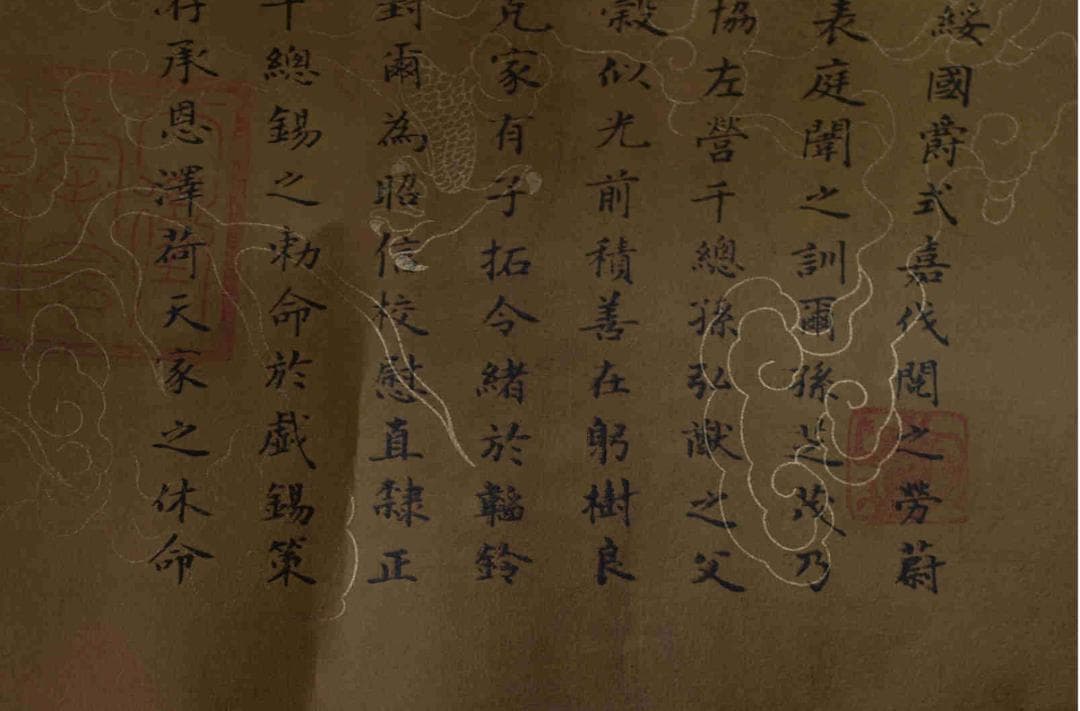 綏國爵式嘉伐閱之勞蔚
表庭闈之訓爾孫芝茂乃
協左營千總孫弘猷之父
穀似光前積善在躬樹良
克家有子拓令緒於韜鈴
封爾為昭信校慰直隸正
千總錫之勅命於戲錫策
承恩澤荷天家之休命